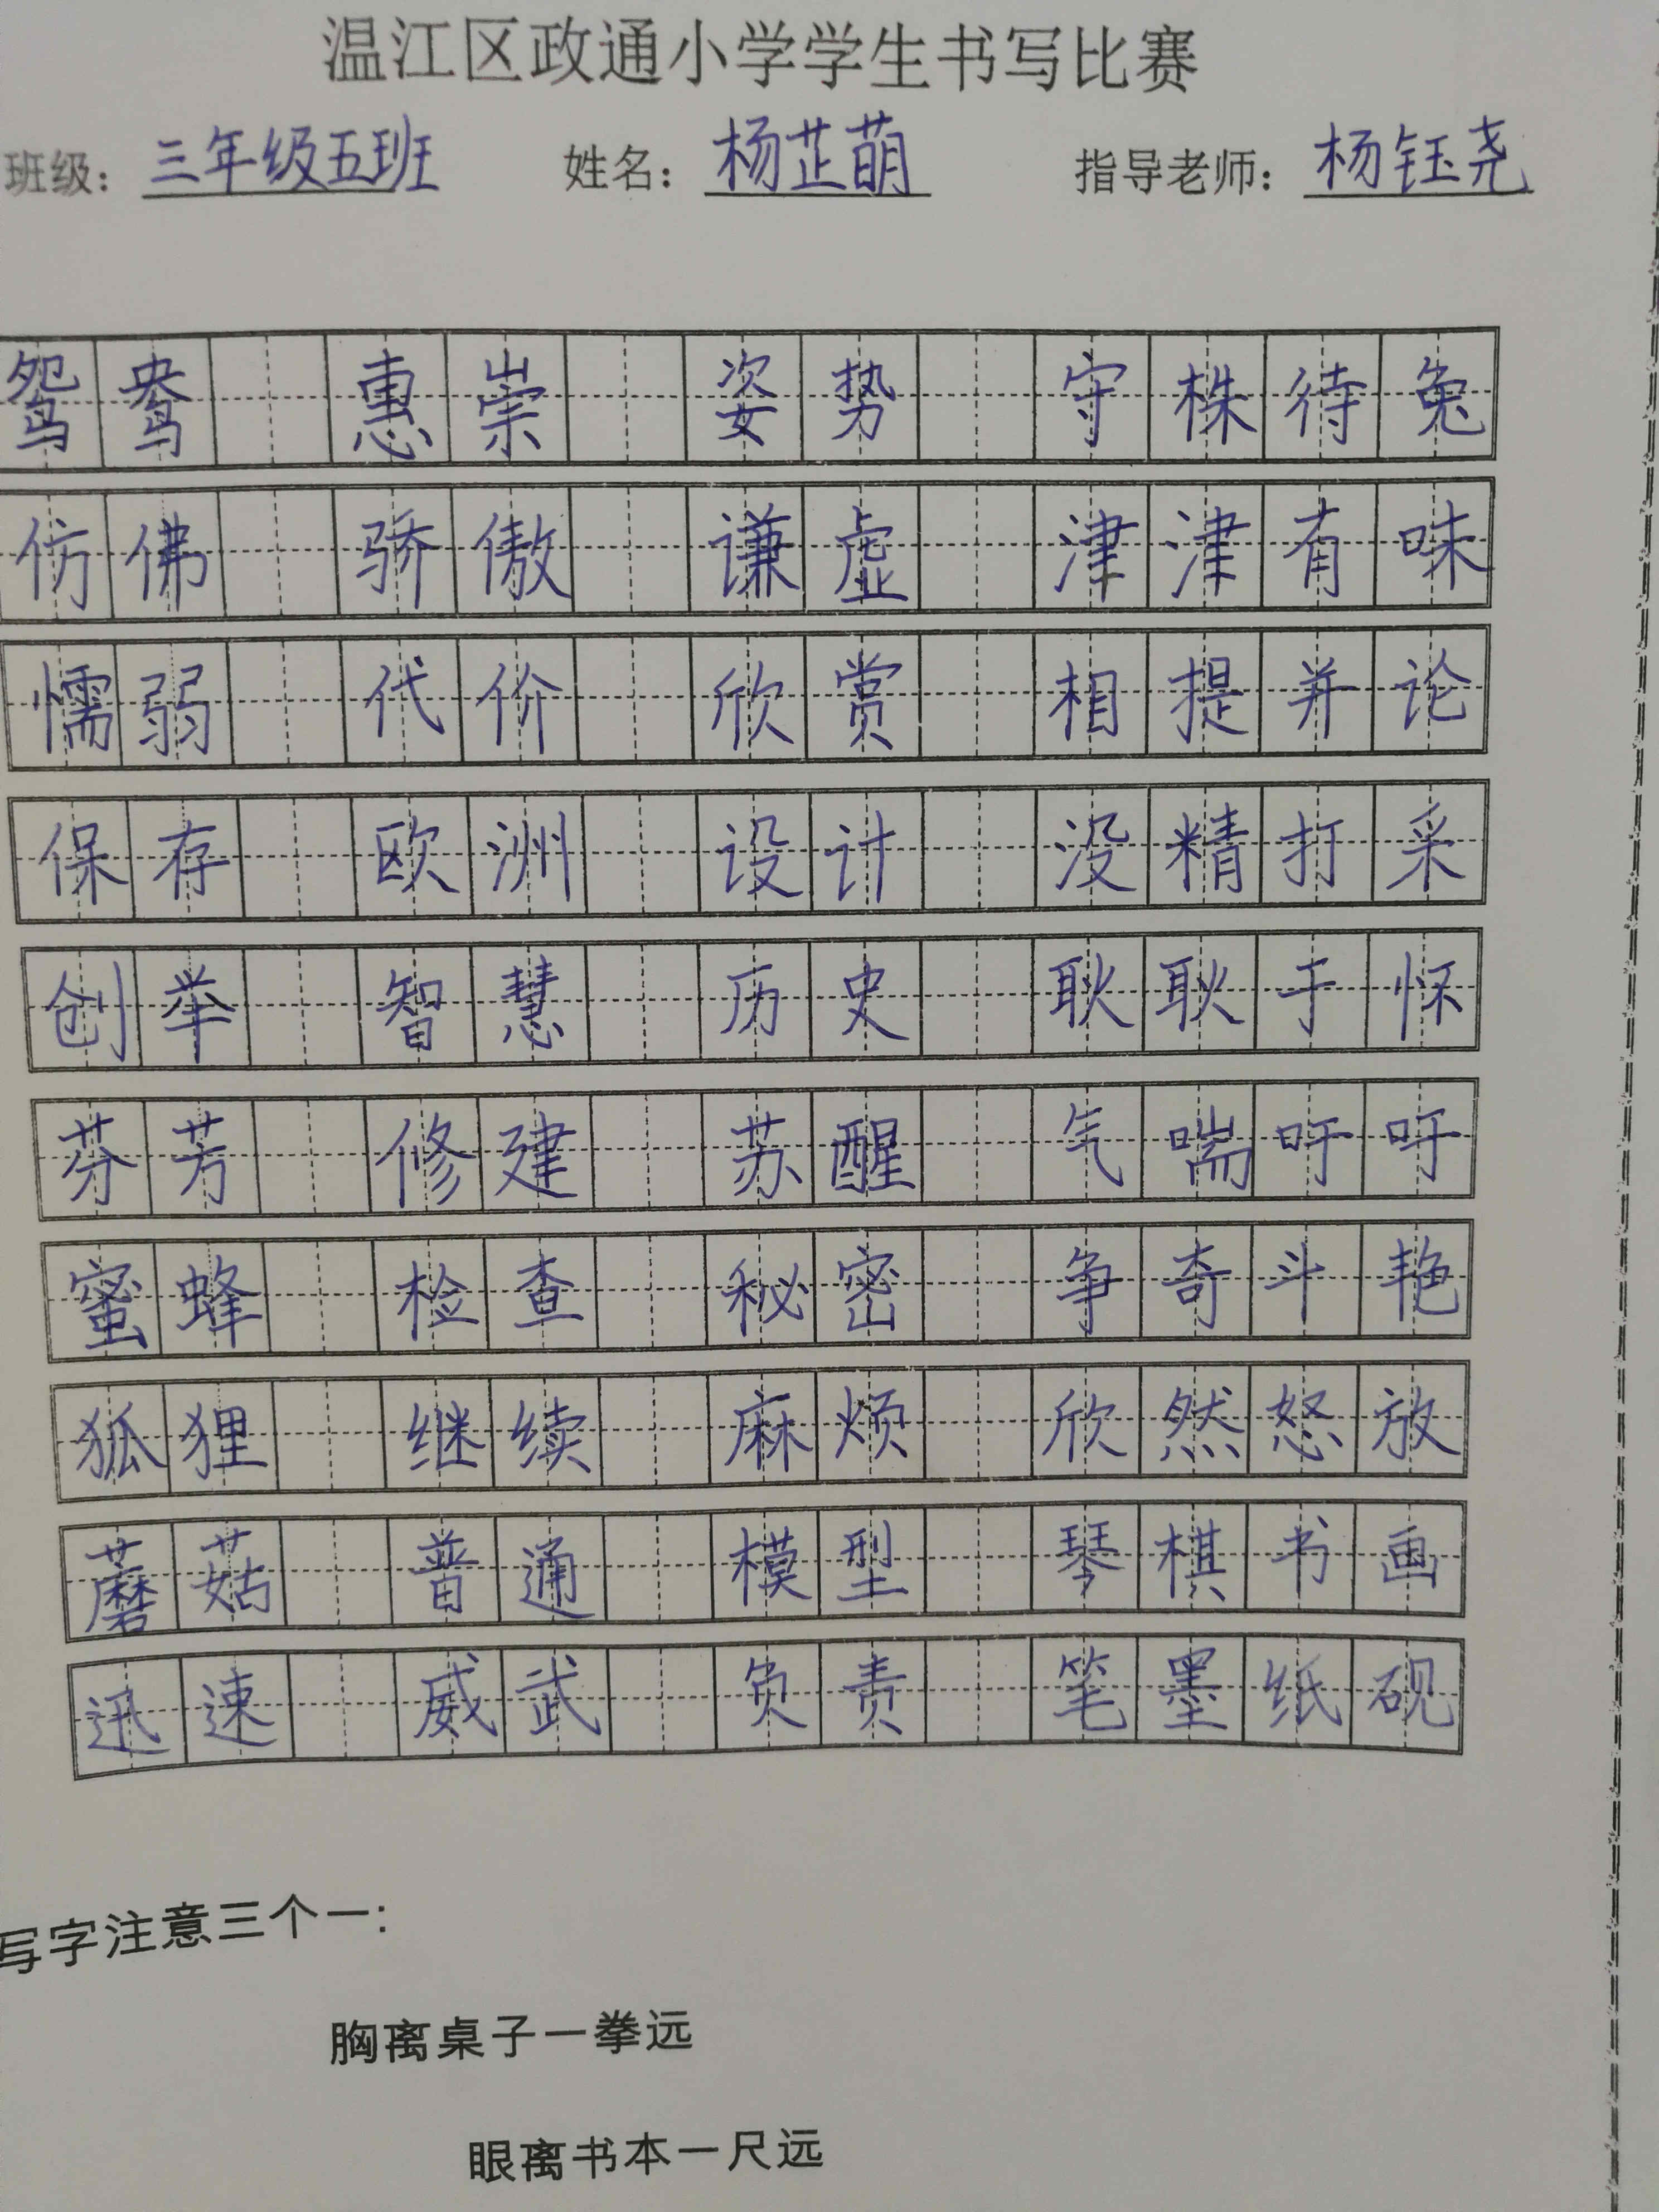 温江区政通小学学生书写比赛
班级：三年级五班 姓名：杨芷萌 指导老师：杨钰尧
鸳鸯 惠崇 姿势 守株待兔
仿佛 骄傲 谦虚 津津有味
懦弱 代价 欣赏 相提并论
保存 欧洲 设计 没精打采
创举 智慧 历史 耿耿于怀
芬芳 修建 苏醒 气喘吁吁
蜜蜂 检查 秘密 争奇斗艳
狐狸 继续 麻烦 欣然怒放
蘑菇 普通 模型 琴棋书画
迅速 威武 负责 笔墨纸砚
写字注意三个一：
胸离桌子一拳远
眼离书本一尺远